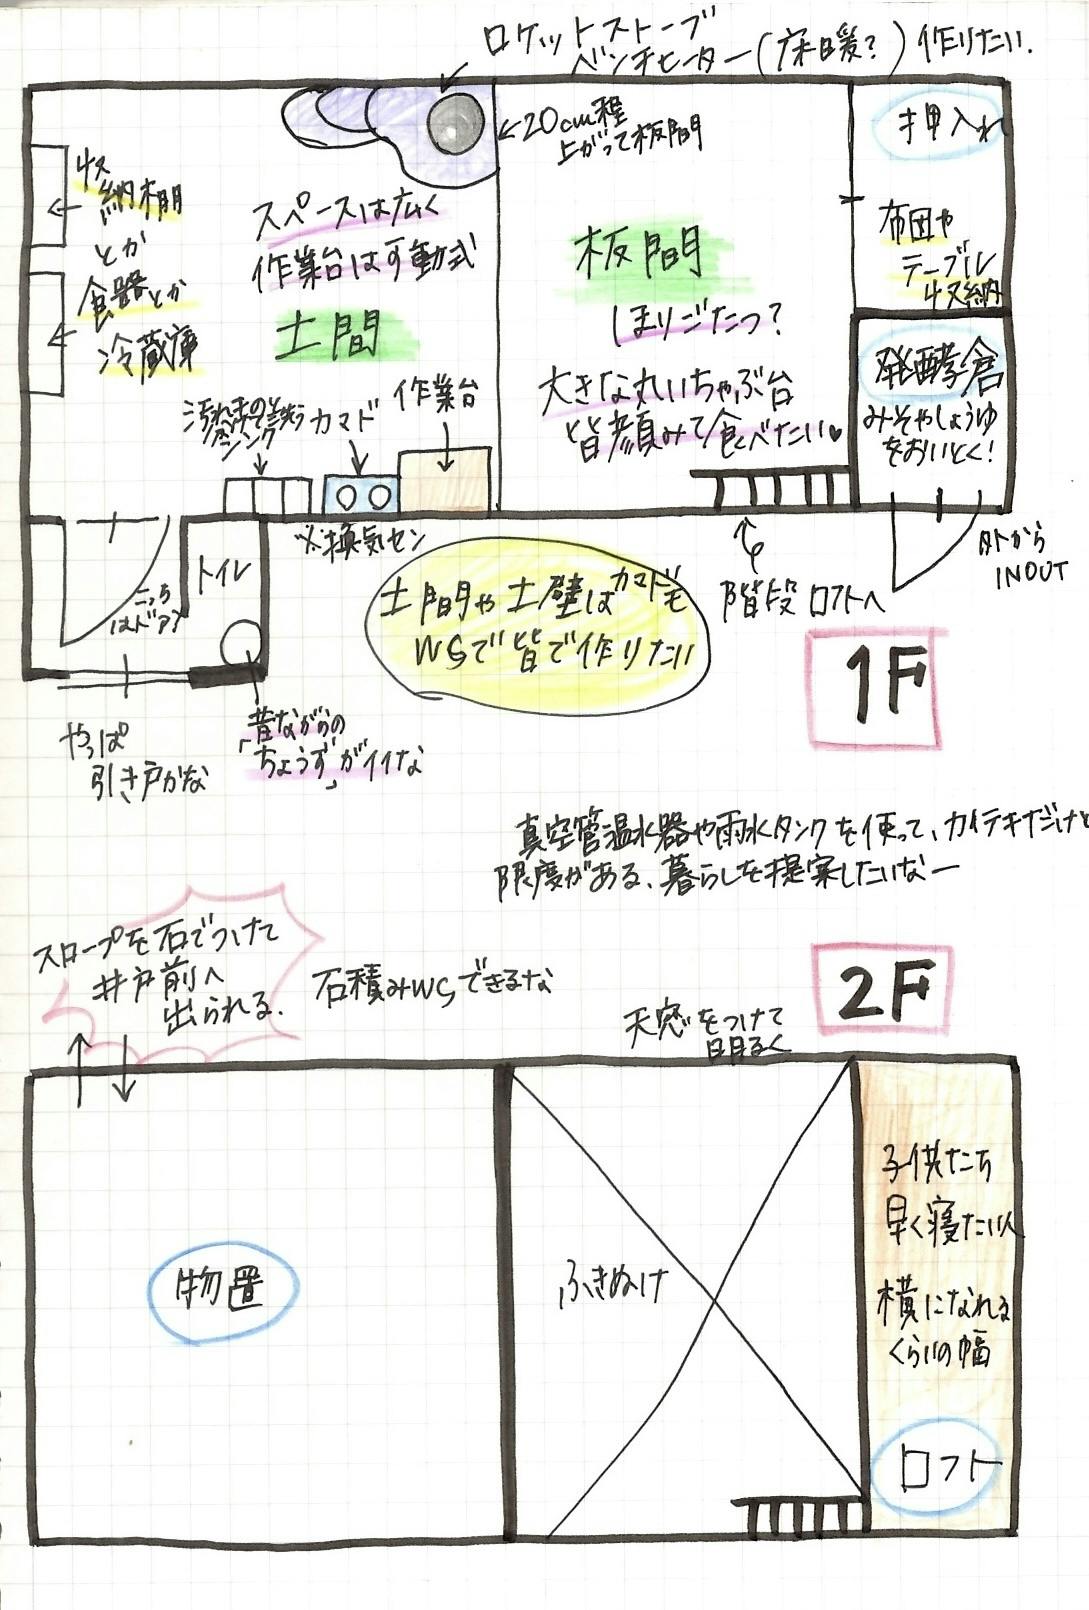 ロケットストーブ
ベンチヒーター(床暖?)作りたい.
←20cm程
上がって板間
押入れ
収
納棚
とか
食器とか
冷蔵庫
スペースは広く
作業台は可動式
土間
板間
ほりごたつ?
大きな丸いちゃぶ台
皆顔みて食べたい♥
布団や
テーブル
収納
発酵倉
みそやしょうゆ
をおいとく!
シンク
カマド
作業台
※換気セン
トイレ
こっち
はドア
土間や土壁はカマドも
WSで皆で作りたい
階段 ロフトへ
外から
INOUT
1F
やっぱ
引き戸かな
昔ながらの
「ちょうず」がイイな
真空管温水器や雨水タンクを使って、カイテキだけど
限度がある、暮らしを提案したいなー
スロープを石でつけて
井戸前へ
出られる.
石積みWSできるな
2F
天窓をつけて
明るく
物置
ふきぬけ
子供たち
早く寝たい人
横になれる
くらいの幅
ロフト